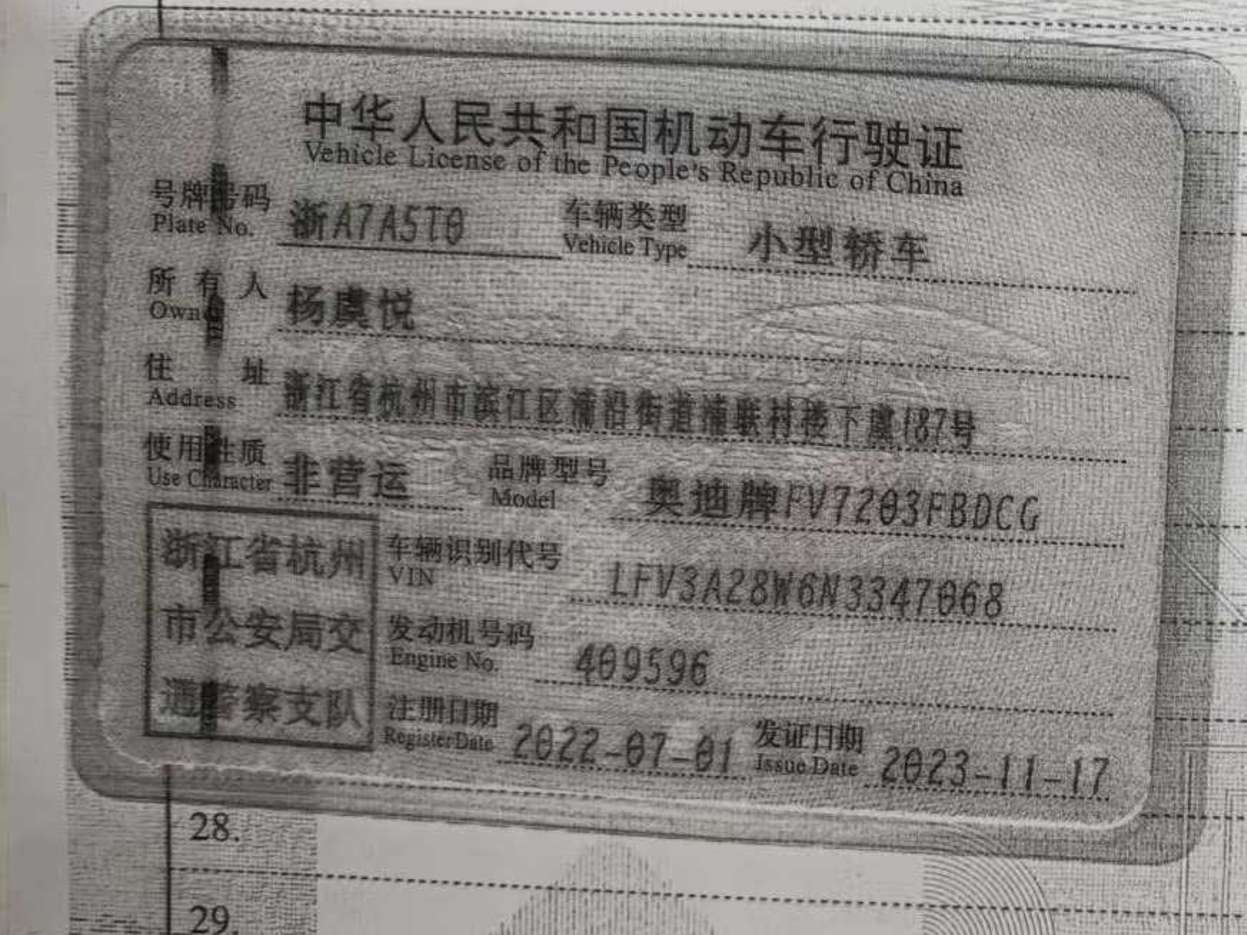 中华人民共和国机动车行驶证
Vehicle License of the People's Republic of China
号牌号码 浙A7A5T0 车辆类型 小型轿车
Plate No. Vehicle Type
所有人 杨虞悦
Owner
住址 浙江省杭州市滨江区浦沿街道浦联村楼下虞187号
Address
使用性质 非营运 品牌型号 奥迪牌FV7203FBDCG
Use Character Model
浙江省杭州 车辆识别代号 LFV3A28W6N3347068
VIN
市公安局交 发动机号码 409596
Engine No.
通警察支队 注册日期 2022-07-01 发证日期 2023-11-17
Register Date Issue Date
28.
29.